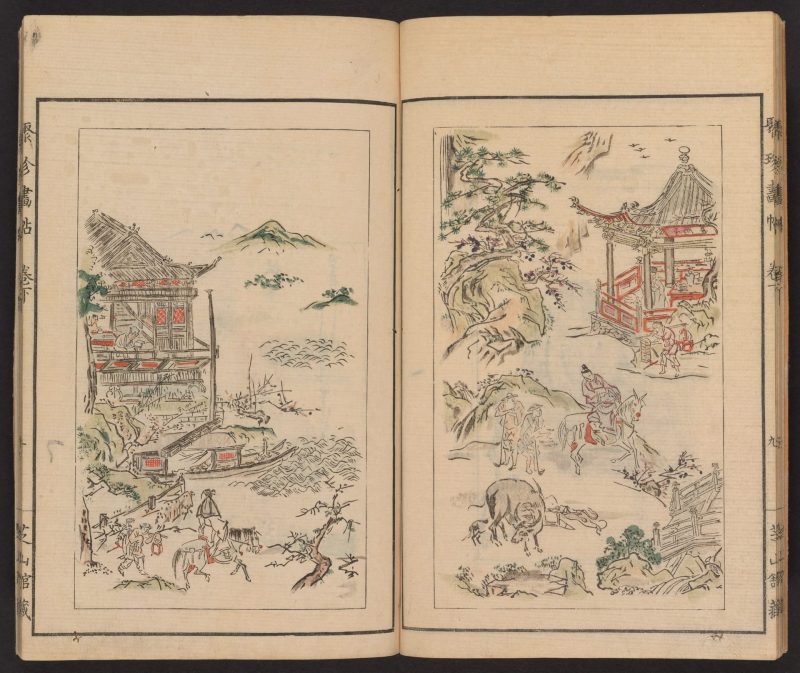 聚珍畫帖 卷下 九 芝山館藏
聚珍畫帖 卷下 芝山館藏